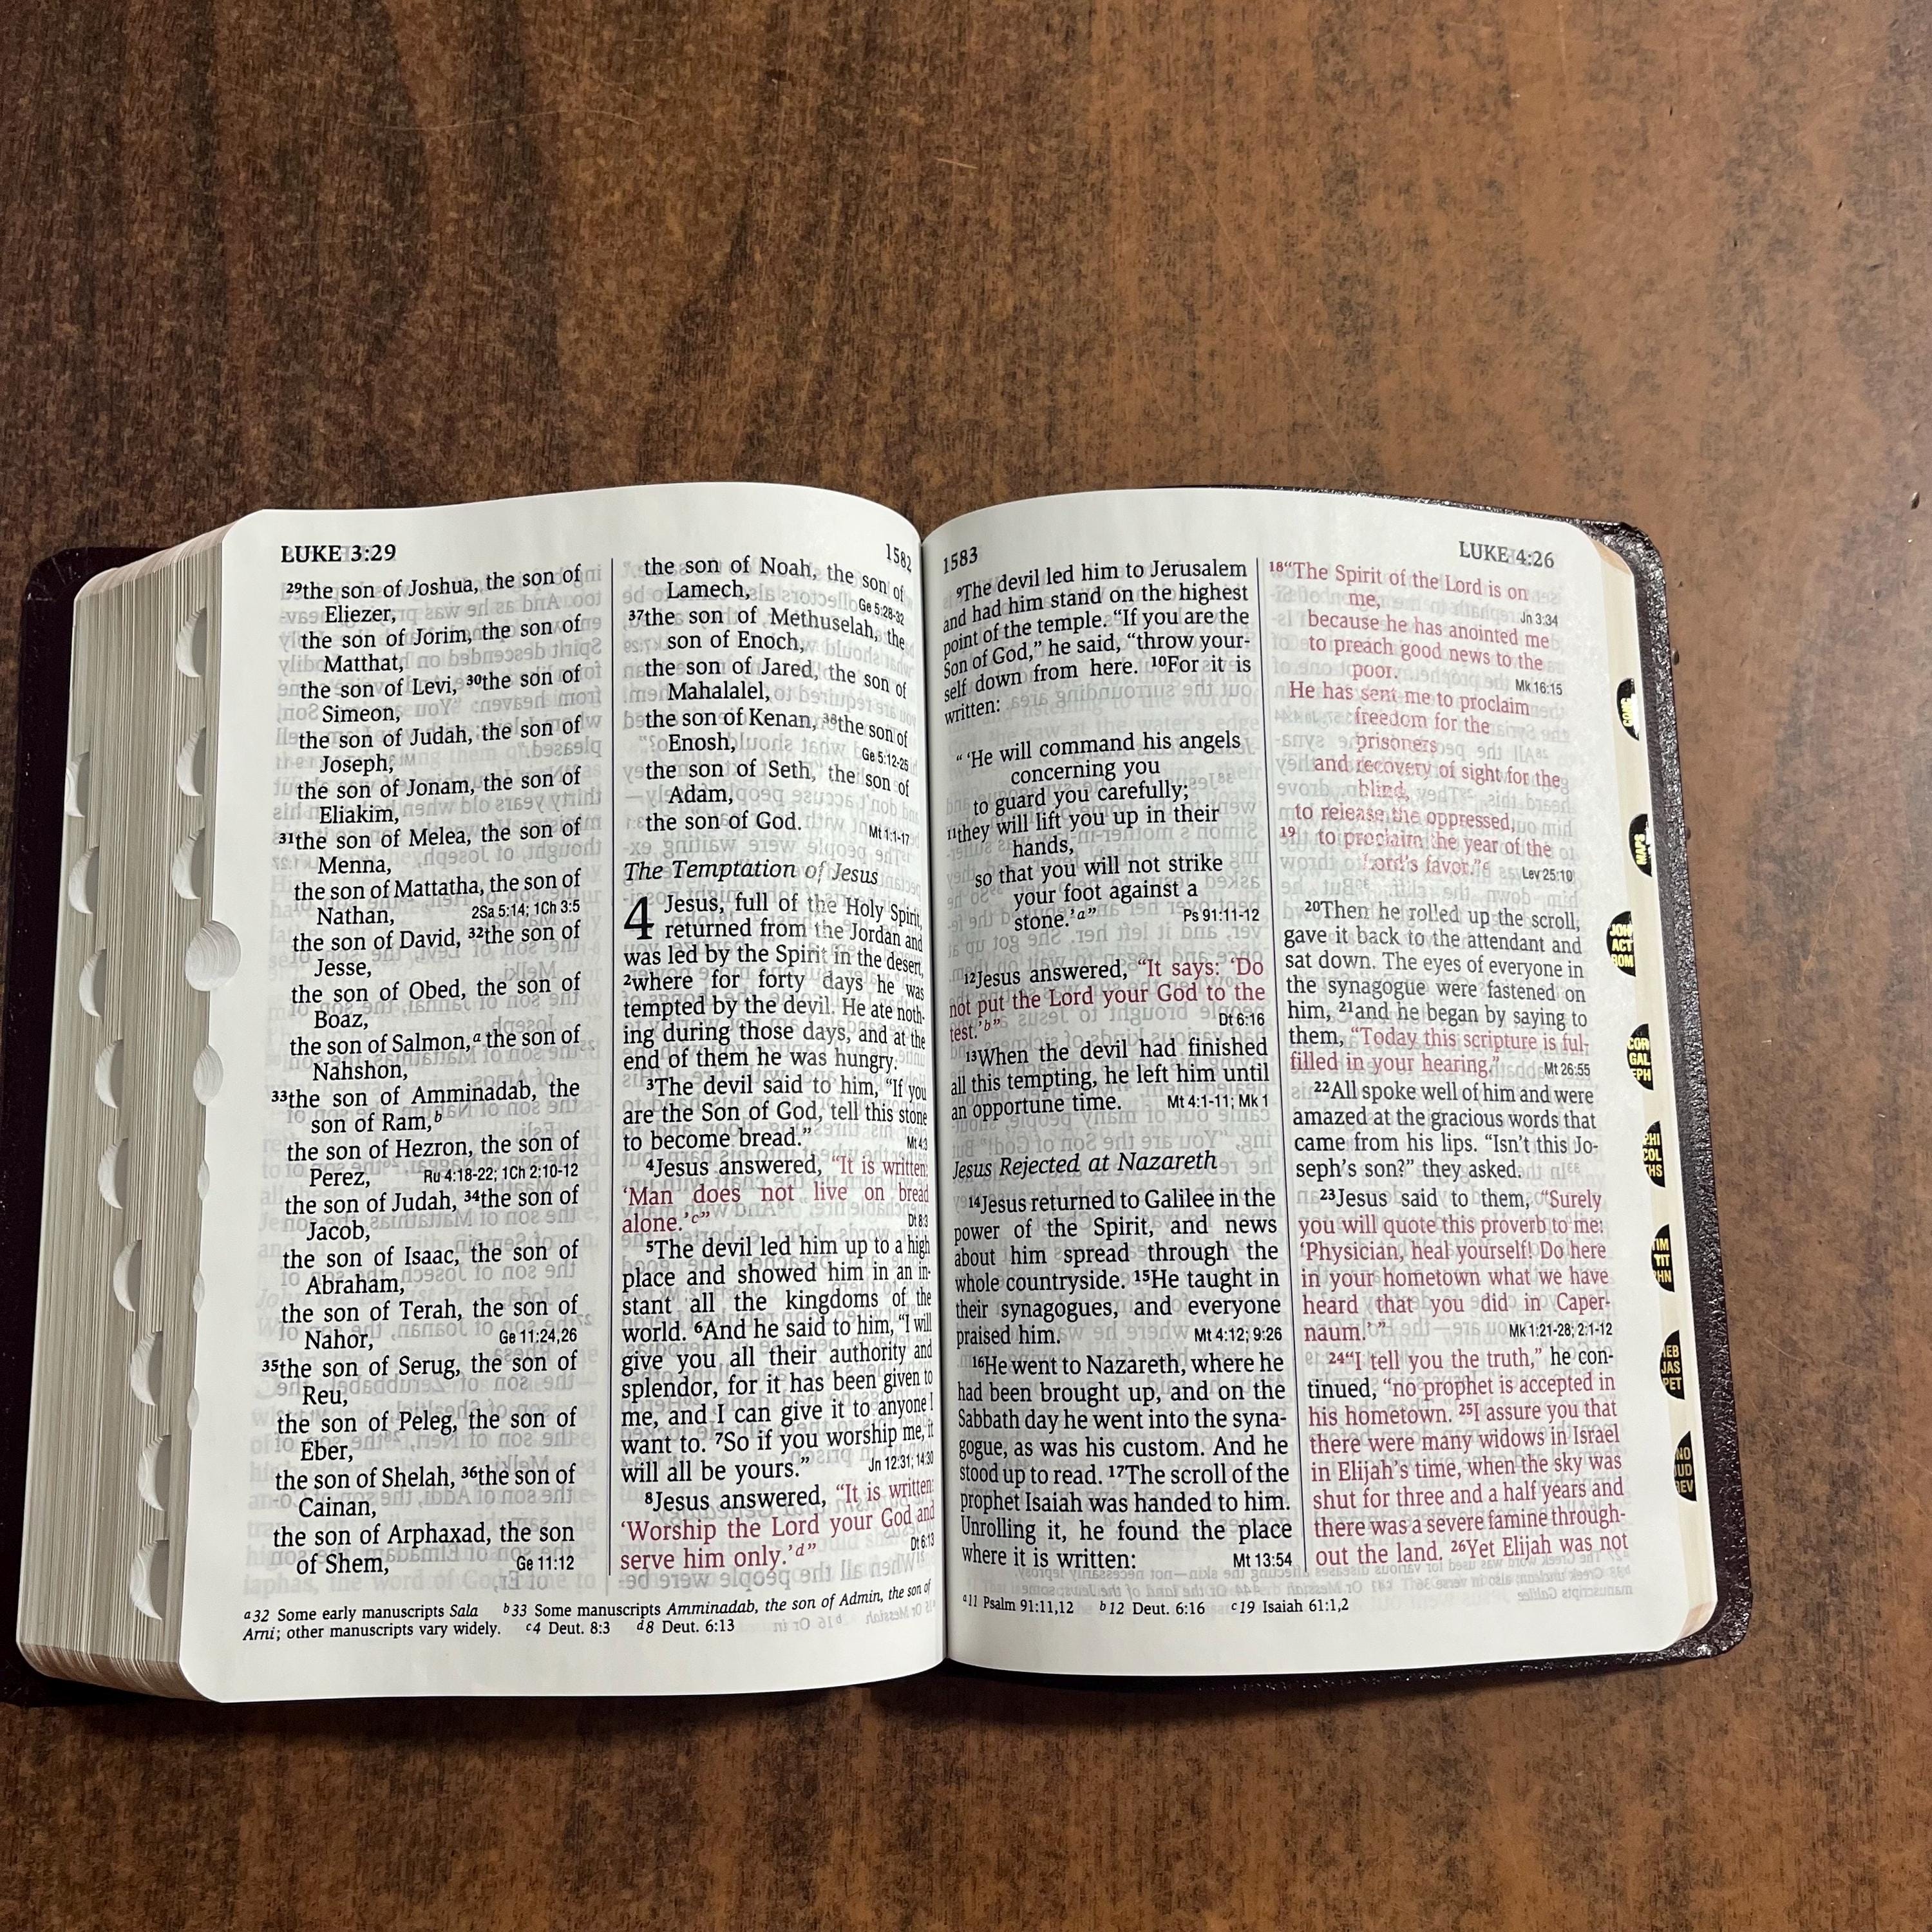 LUKE 3:29
1582
29the son of Joshua, the son of
Eliezer,
the son of Jorim, the son of
Matthat,
the son of Levi, 30the son of
Simeon,
the son of Judah, the son of
Joseph,
the son of Jonam, the son of
Eliakim,
31the son of Melea, the son of
Menna,
the son of Mattatha, the son of
Nathan, 2Sa 5:14; 1Ch 3:5
the son of David, 32the son of
Jesse,
the son of Obed, the son of
Boaz,
the son of Salmon,a the son of
Nahshon,
33the son of Amminadab, the
son of Ram,b
the son of Hezron, the son of
Perez, Ru 4:18-22; 1Ch 2:10-12
the son of Judah, 34the son of
Jacob,
the son of Isaac, the son of
Abraham,
the son of Terah, the son of
Nahor, Ge 11:24,26
35the son of Serug, the son of
Reu,
the son of Peleg, the son of
Eber,
the son of Shelah, 36the son of
Cainan,
the son of Arphaxad, the son
of Shem, Ge 11:12
the son of Noah, the son of
Lamech, Ge 5:28-32
37the son of Methuselah, the
son of Enoch,
the son of Jared, the son of
Mahalalel,
the son of Kenan, 38the son of
Enosh, Ge 5:12-25
the son of Seth, the son of
Adam,
the son of God. Mt 1:1-17
The Temptation of Jesus
4 Jesus, full of the Holy Spirit,
returned from the Jordan and
was led by the Spirit in the desert,
2where for forty days he was
tempted by the devil. He ate noth-
ing during those days, and at the
end of them he was hungry.
3The devil said to him, “If you
are the Son of God, tell this stone
to become bread.” Mt 4:3
4Jesus answered, “It is written:
‘Man does not live on bread
alone.’c” Dt 8:3
5The devil led him up to a high
place and showed him in an in-
stant all the kingdoms of the
world. 6And he said to him, “I will
give you all their authority and
splendor, for it has been given to
me, and I can give it to anyone I
want to. 7So if you worship me, it
will all be yours.” Jn 12:31; 14:30
8Jesus answered, “It is written:
‘Worship the Lord your God and
serve him only.’d” Dt 6:13
a32 Some early manuscripts Sala b33 Some manuscripts Amminadab, the son of Admin, the son of
Arni; other manuscripts vary widely. c4 Deut. 8:3 d8 Deut. 6:13
1583
LUKE 4:26
9The devil led him to Jerusalem
and had him stand on the highest
point of the temple. “If you are the
Son of God,” he said, “throw your-
self down from here. 10For it is
written:
“ ‘He will command his angels
concerning you
to guard you carefully;
11they will lift you up in their
hands,
so that you will not strike
your foot against a
stone.’a” Ps 91:11-12
12Jesus answered, “It says: ‘Do
not put the Lord your God to the
test.’b” Dt 6:16
13When the devil had finished
all this tempting, he left him until
an opportune time. Mt 4:1-11; Mk 1
Jesus Rejected at Nazareth
14Jesus returned to Galilee in the
power of the Spirit, and news
about him spread through the
whole countryside. 15He taught in
their synagogues, and everyone
praised him. Mt 4:12; 9:26
16He went to Nazareth, where he
had been brought up, and on the
Sabbath day he went into the syna-
gogue, as was his custom. And he
stood up to read. 17The scroll of the
prophet Isaiah was handed to him.
Unrolling it, he found the place
where it is written: Mt 13:54
18“The Spirit of the Lord is on
me, Jn 3:34
because he has anointed me
to preach good news to the
poor. Mk 16:15
He has sent me to proclaim
freedom for the
prisoners
and recovery of sight for the
blind,
to release the oppressed,
19 to proclaim the year of the
Lord’s favor.”c Lev 25:10
20Then he rolled up the scroll,
gave it back to the attendant and
sat down. The eyes of everyone in
the synagogue were fastened on
him, 21and he began by saying to
them, “Today this scripture is ful-
filled in your hearing.” Mt 26:55
22All spoke well of him and were
amazed at the gracious words that
came from his lips. “Isn’t this Jo-
seph’s son?” they asked.
23Jesus said to them, “Surely
you will quote this proverb to me:
‘Physician, heal yourself! Do here
in your hometown what we have
heard that you did in Caper-
naum.’ ” Mk 1:21-28; 2:1-12
24“I tell you the truth,” he con-
tinued, “no prophet is accepted in
his hometown. 25I assure you that
there were many widows in Israel
in Elijah’s time, when the sky was
shut for three and a half years and
there was a severe famine through-
out the land. 26Yet Elijah was not
a11 Psalm 91:11,12 b12 Deut. 6:16 c19 Isaiah 61:1,2
CONC
MAPS
JOH
ACT
ROM
COR
GAL
EPH
PHI
COL
THS
TIM
TIT
PHN
HEB
JAS
PET
JNO
JUD
REV